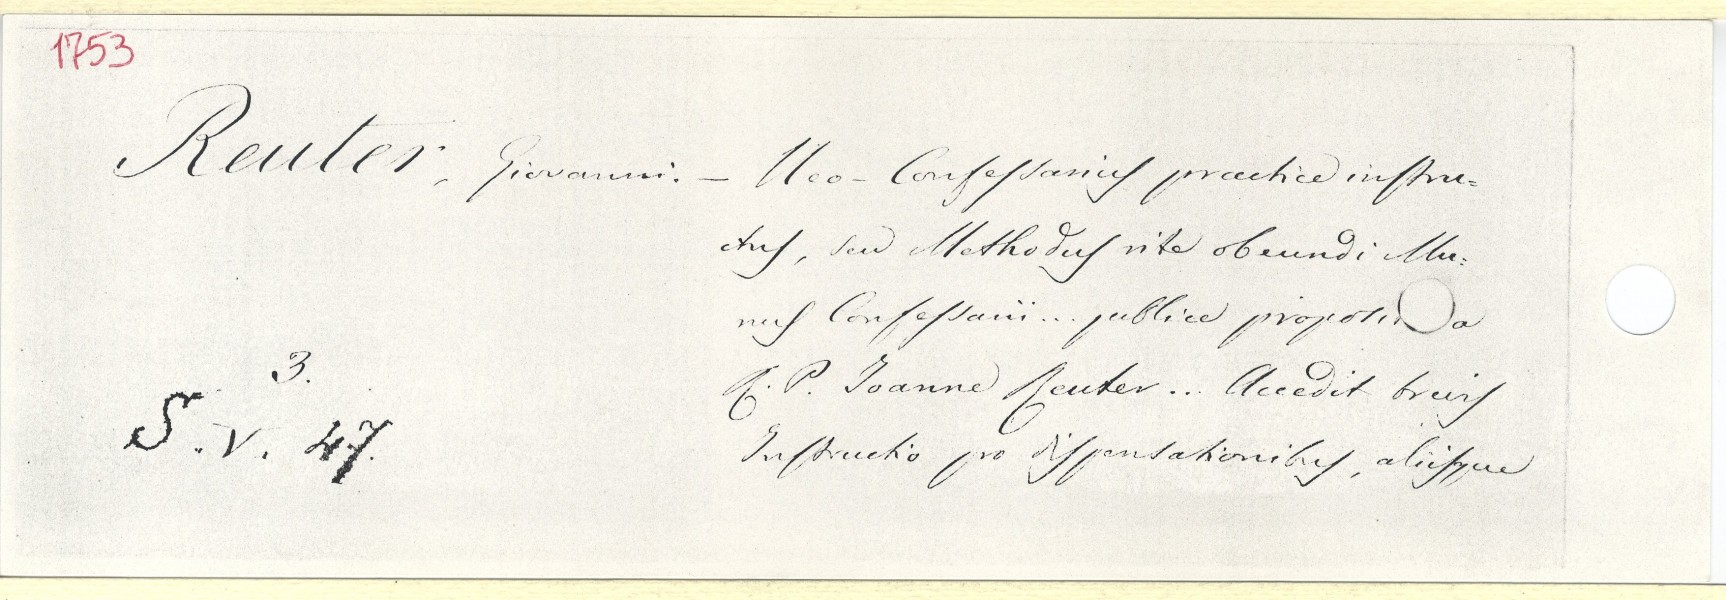 1753
Reuter, Giovanni. - Neo-Confessarius practice instru=
ctus, seu Methodus rite obeundi Mu=
nus Confessarii... publice a
R. P. Joanne Reuter... Accedit brevis
Instructio pro dispensationibus, aliisque
3.
S. V. 47.